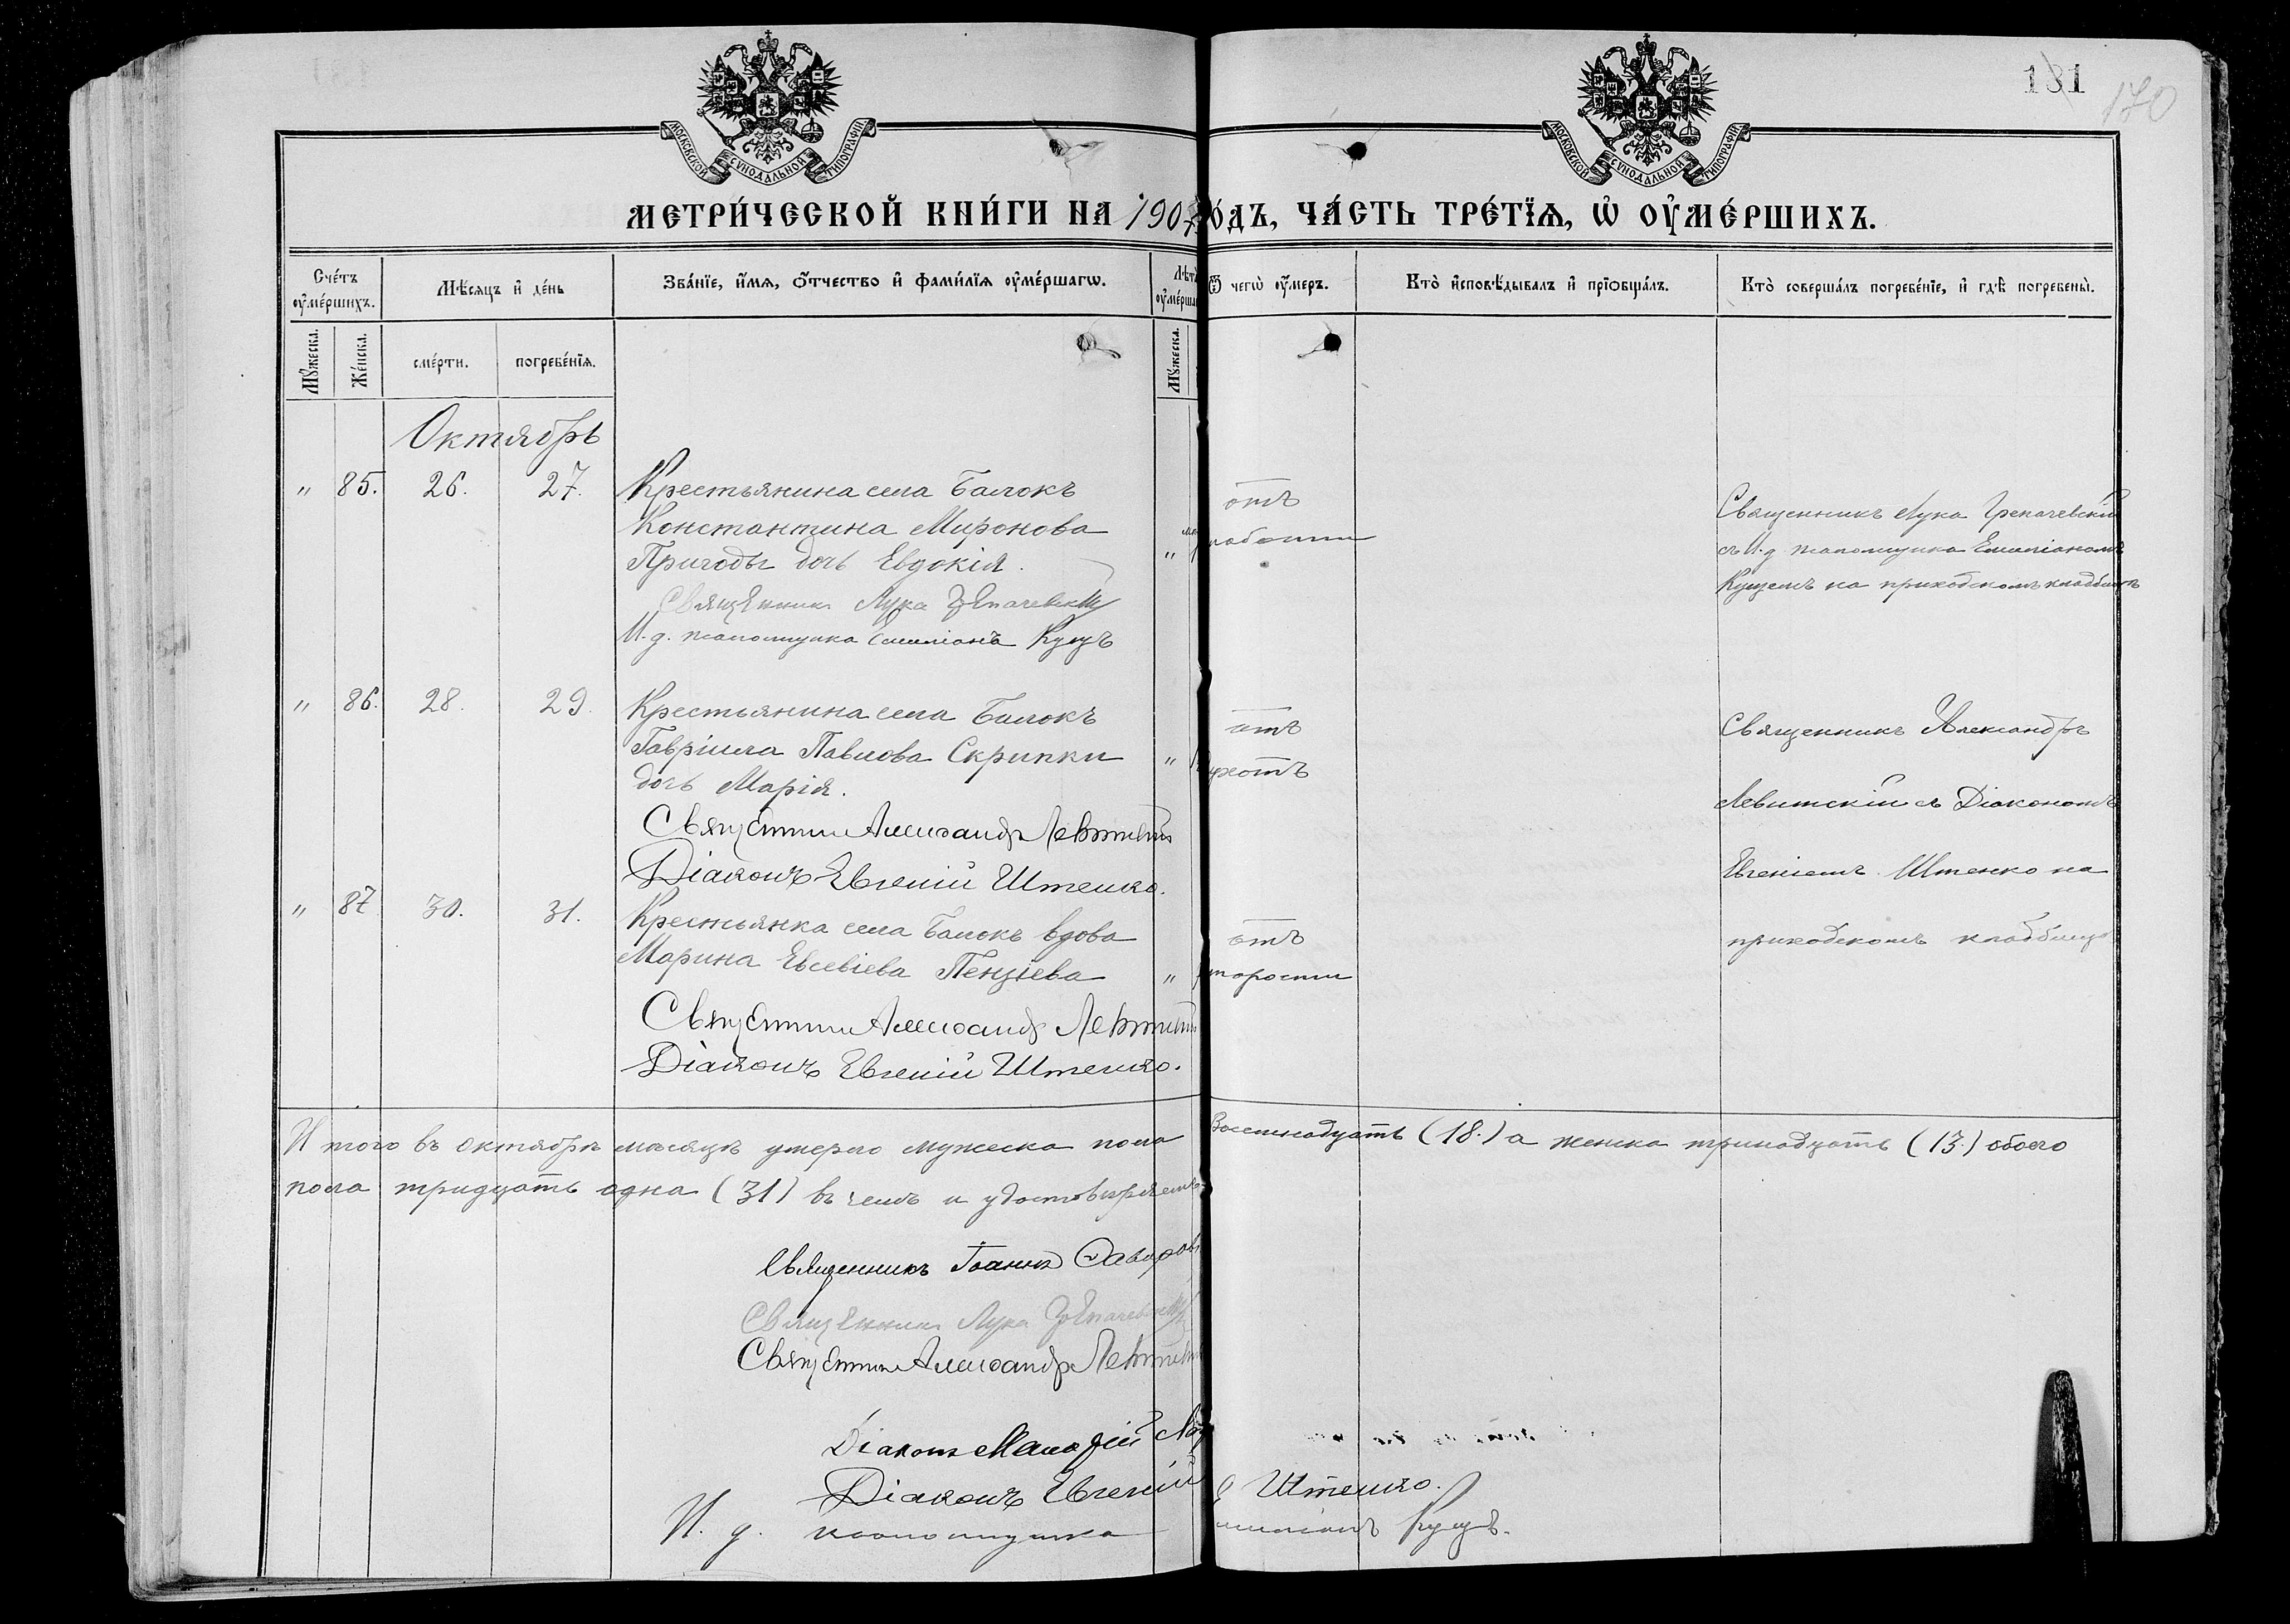 МОСКОВСКОЙ СѴНОДАЛЬНОЙ ТИПОГРАФІИ
МОСКОВСКОЙ СѴНОДАЛЬНОЙ ТИПОГРАФІИ
181
170
МЕТРИ́ЧЕСКОЙ КНИ́ГИ НА 1907 ГО́ДЪ, ЧА́СТЬ ТРЕ́ТЇѦ, Ѡ ОУ҆МЕ́РШИХЪ.
Сче́тъ оу҆ме́ршихъ.
Мѣ́сѧцъ и҆ де́нь
Зва́нїе, и҆́мѧ, ѻ҆́тчество и҆ фами́лїѧ оу҆ме́ршагѡ.
Лѣт
оу҆ме́рша
Ѿ чегѡ̀ оу҆́меръ.
Кто̀ и҆сповѣ́дывалъ и҆ прїѡбща́лъ.
Кто̀ соверша́лъ погребе́нїе, и҆ гдѣ̀ погребены̀.
Мꙋ́жеска.
Же́нска.
сме́рти.
погребе́нїѧ.
Мꙋ́жеска.
Октябрь
" 85. 26. 27. Крестьянина села Балокъ
Константина Миронова
Пригоды дочь Евдокія.
Священникъ Лука Грепачевскій
И. д. псаломщика Емиліанъ Кущъ
"
отъ
слабости
Священникъ Лука Грепачевскій
съ И. д псаломщика Емиліаномъ
Кущемъ на приходскомъ кладбищѣ
" 86. 28. 29. Крестьянина села Балокъ
Гавріила Павлова Скрипки
дочь Марія.
Священникъ Александръ Левитскій
Діаконъ Евгеній Штенко.
"
отъ
Священникъ Александръ
Левитскій съ Діакономъ
Евгеніемъ Штенко на
приходскомъ кладбищѣ
" 87 30. 31. Крестьянка села Балокъ вдова
Марина Евсевіева Пензіева
Священникъ Александръ Левитскій
Діаконъ Евгеній Штенко.
"
отъ
старости
Итого въ октябрѣ мѣсяцѣ умерло мужеска пола восемнадцать (18.) а женска тринадцать (13.) обоего
пола тридцать одна (31) въ чемъ и удостовѣряемъ
Священникъ Іоаннъ
Священникъ Лука Грепачевскій
Священникъ Александръ Левитскій
Діаконъ
Діаконъ Евгеній Штенко.
И. д. псаломщика Емиліанъ Кущъ.